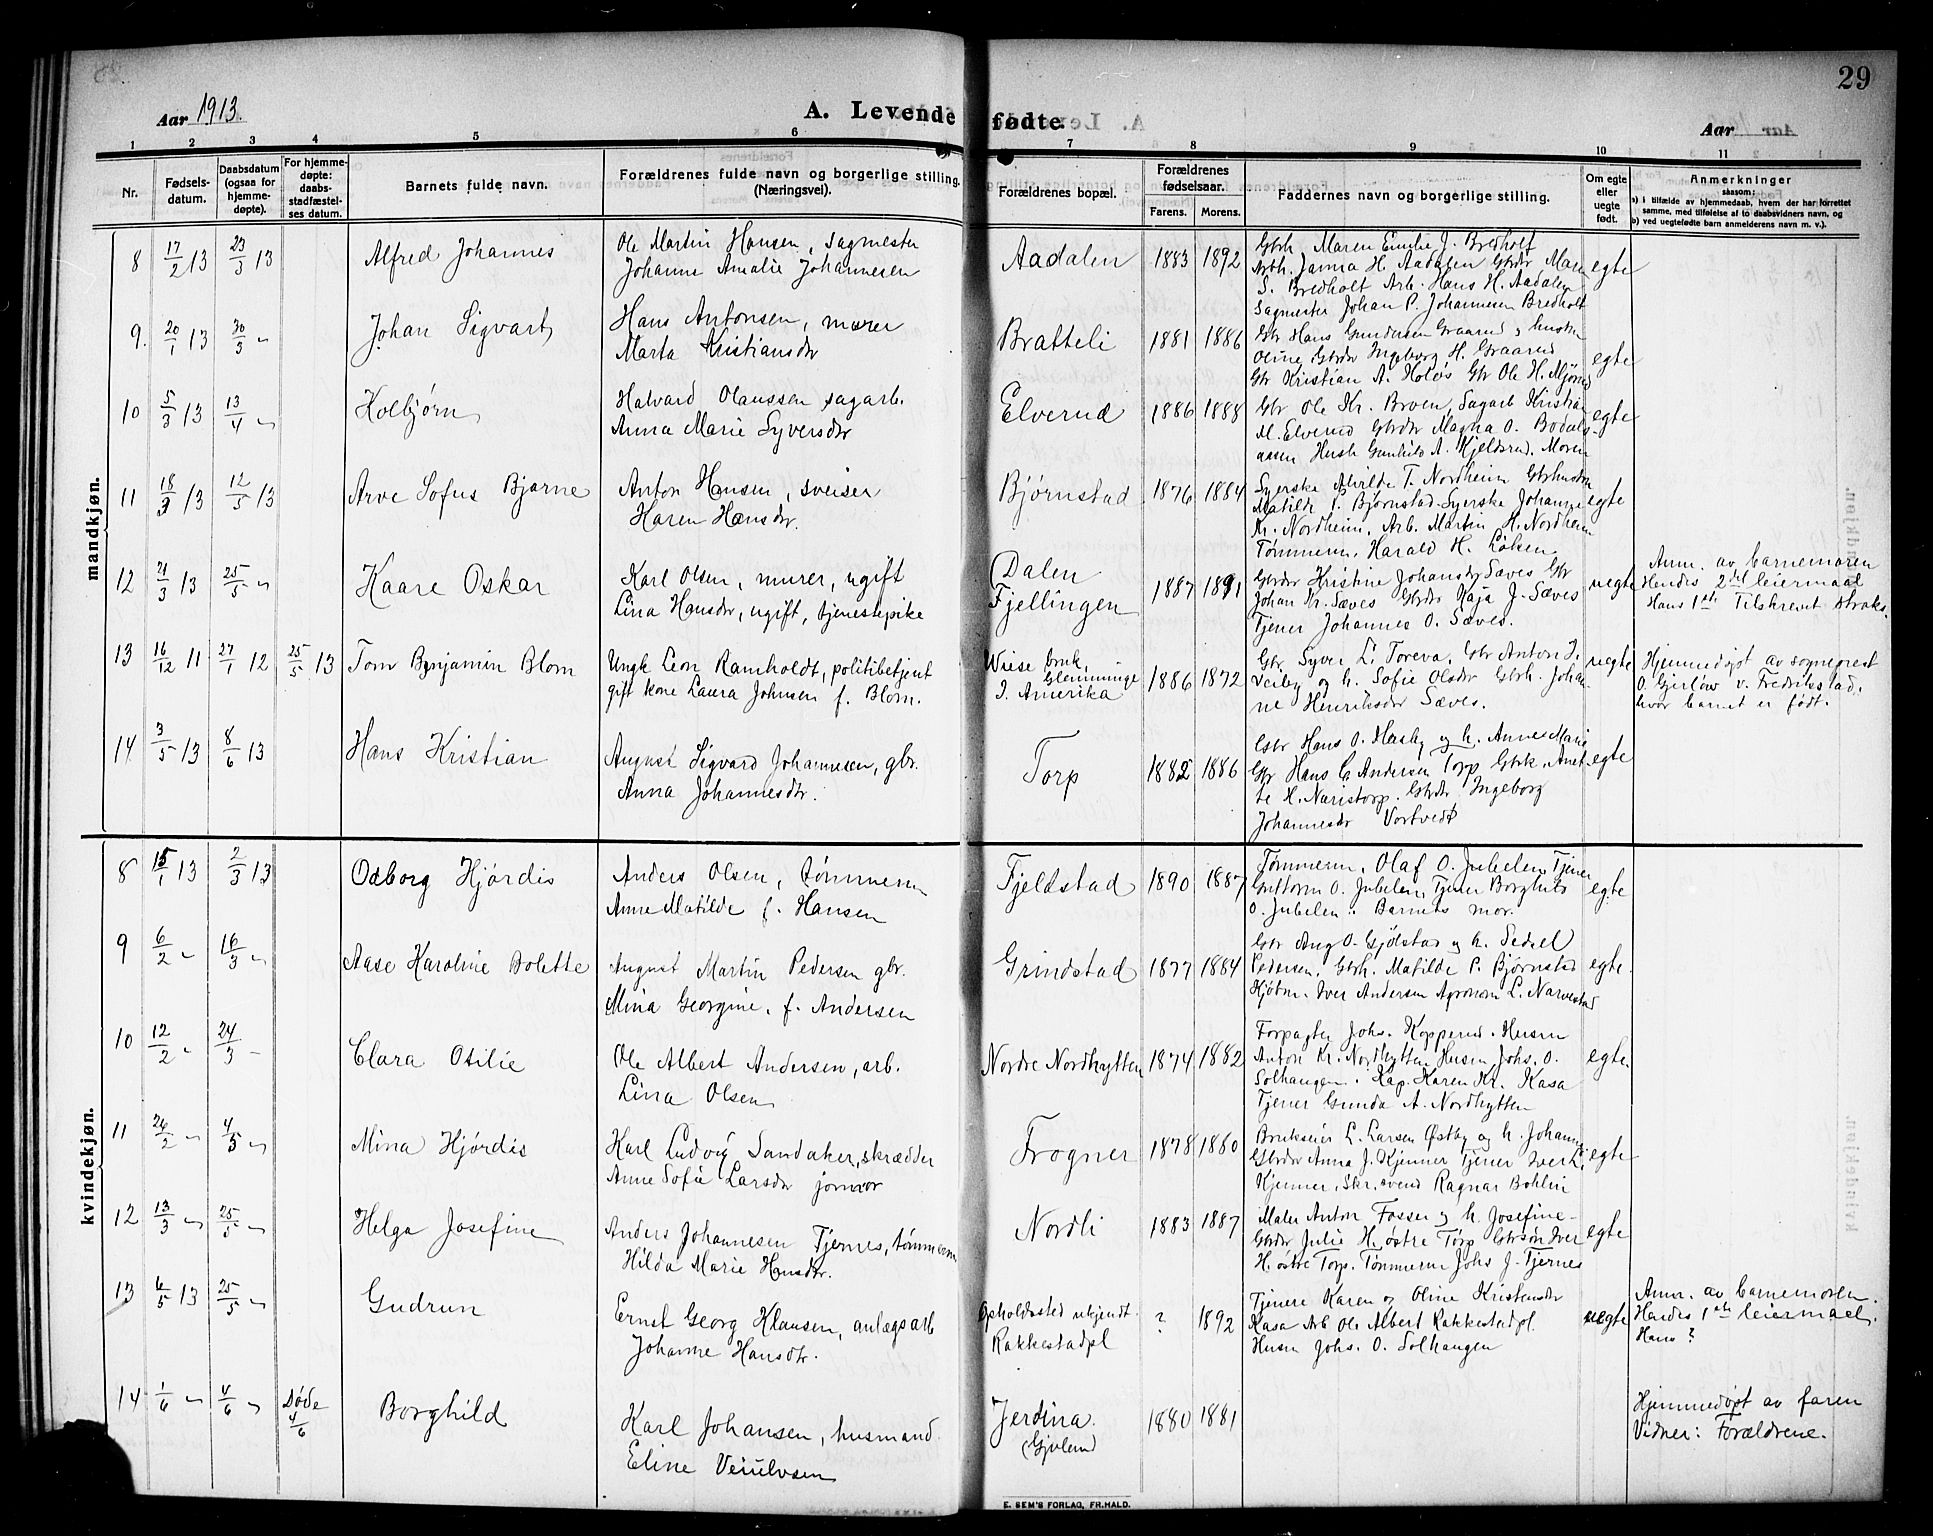 29
Aar 1913.
A. Levende fødte.
Aar
1 2 3 4 5 6 7 8 9 10 11
Nr.
Fødsels-
datum.
Daabsdatum
(ogsaa for
hjemme-
døpte).
For hjemme-
døpte:
daabs-
stadfæstel-
ses datum.
Barnets fulde navn.
Forældrenes fulde navn og borgerlige stilling.
(Næringsvei).
Forældrenes bopæl.
Forældrenes
fødselsaar.
Farens. Morens.
Faddernes navn og borgerlige stilling.
Om egte
eller
uegte
født.
Anmerkninger
saasom:
a) i tilfælde av hjemmedaab, hvem der har forrettet
samme, med tilføielse af to daabsvidners navn, og
b) ved uegtefødte barn anmelderens navn m. v.).
mandkjøn.
8 17/2 13 23/3 13 Alfred Johannes
Ole Martin Hansen, sagmester
Johanne Amalie Johannesen
Aadalen 1883 1892
Gbrh. Maren Emilie J. Bredholt
Arbh. Janna H. Aadalen Gbrdr Maren
S. Bredholt Arb. Hans H. Aadalen
Sagmester Johan P. Johannesen Bredholt
egte
9. 20/1 13 30/3 " Johan Sigvart
Hans Antonsen, murer
Marta Kristiansdr
Bratteli 1881 1886
Gbr Hans Gundersen Graarud og hustru
Oline Gbrdr Ingeborg H. Graarud
Gbr Kristian A. Holøs Gbr Ole H. Mjørud
egte
10 5/3 13 13/4 " Kolbjørn
Halvard Olaussen sagarb.
Anna Marie Syversdr
Elverud 1886 1888
Gbr Ole Kr. Broen, Sagarb Kristian
M. Elverud Gbrdr Magna O. Bodals-
aasen Hush Gunhild A. Kjeldsrud, Moren
egte
11 18/3 13 12/5 13 Arve Sofus Bjarne
Anton Hansen, sveiser
Karen Hansdr.
Bjørnstad 1876 1884
Syerske Alvilde T. Nordheim Gbrhustru
Matilde P. Bjørnstad Syerske Johanne
Kr. Nordheim, Arb. Martin H. Nordheim
Tømmerm. Harald H. Løken
egte
12 21/3 13 25/5 " Kaare Oskar
Karl Olsen, murer, ugift
Lina Hansdr, ugift, tjenestepike
Dalen
Fjellingen 1887 1891
Gbrdr Kristine Johansdr Sæves Gbr
Johan Kr. Sæves Gbrdr Kaja J. Sæves
Tjener Johannes O. Sæves.
uegte
Anm. av barnemoren
Hendes 2det leiermaal
Hans 1ste Tilskrevet straks.
13 16/12 11 27/1 12 25/5 13 Tom Benjamin Blom
Ungk Leon Ramholdt, politibetjent
gift kone Laura Johnsen f. Blom.
Wiese bruk,
Glemminge
I. Amerika 1886 1872
Gbr. Syver L. Toreva, Gbr Anton J.
Veiby og h. Sofie Olsdr Gbrh. Johan-
ne Henriksdr Sæves.
uegte
Hjemmedøpt av sogneprest
O. Gjerløw v. Fredrikstad,
hvor barnet er født.
14 3/5 13 8/6 13 Hans Kristian
August Sigvard Johannesen, gbr.
Anna Johannesdr.
Torp 1882 1886
Gbr Hans O. Hasby og h. Anne Marie
Gbr Hans C Andersen Torp Gbrk. Anet-
te H. Naristorp. Gbrdr Ingeborg
Johannesdr Vortvedt
egte
kvindekjøn.
8 15/1 13 2/3 13 Odborg Hjørdis
Anders Olsen, tømmerm
Anne Matilde f. Hansen
Fjeldstad 1890 1887
Tømmerm. Olaf O. Jubelen, Tjener
Guttorm O. Jubelen, Tjener Borghild
O. Jubelen. Barnets mor.
egte
9 6/2 " 16/3 " Aase Karoline Bolette
August Martin Pedersen gbr.
Mina Georgine, f. Andersen
Grindstad 1877 1884
Gbr Aug O. Gjølstad og h. Sedsel
Pedersen, Gbrh. Matilde P. Bjørnstad
Kjøbm. Iver Andersen Agronom L. Narvestad
egte.
10 12/2 " 24/3 " Clara Otilie
Ole Albert Andersen, arb.
Lina Olsen
Nordre Nordhytten 1874 1882
Forpagter Johs. Kopperud. Husm
Anton Kr. Nordhytten Husm Johs. O.
Solhaugen. Kap. Karen Kr. Kasa
Tjener Gunda A. Nordhytten
egte.
11 26/2 " 4/5 " Mina Hjørdis
Karl Ludvig Sandaker, skrædder
Anne Sofie Larsdr jormor
Frogner 1878 1880
Brukseier L. Larsen Østby og h. Johanne
Gbrdr Anna J. Kjenner Tjener Iver L.
Kjenner, Skr.svend Ragnar Bohlin
egte
12 13/3 " 25/5 " Helga Josefine
Anders Johannesen Tjernes, tømmerm
Hilda Marie Hansdr.
Nordli 1883 1887
Maler Anton Fosser og h. Josefine
Gbrdr Julie H. østre Torp Gbrsøn Iver
H. østre Torp. Tømmerm Johs J. Tjernes
egte
13 6/5 13 25/5 " Gudrun
Ernst Georg Klausen, anlægsarb
Johanne Hansdtr.
Opholdssted ukjendt.
Rakkestadpl ? 1892
Tjenere Karen og Oline Kristensdr
Kasa Arb Ole Albert Rakkestadpl.
Husm Johs. O. Solhaugen
uegte
Anm. av barnemoren.
Hendes 1ste leiermaal.
Hans ?
14 1/6 " 4/6 " Døde
4/6
Borghild
Karl Johansen, husmand.
Eline
Jerdina.
1880 1881
Hjemmedøpt av faren
Vidner: Forældrene.
E. SEM'S FORLAG, FR.HALD.